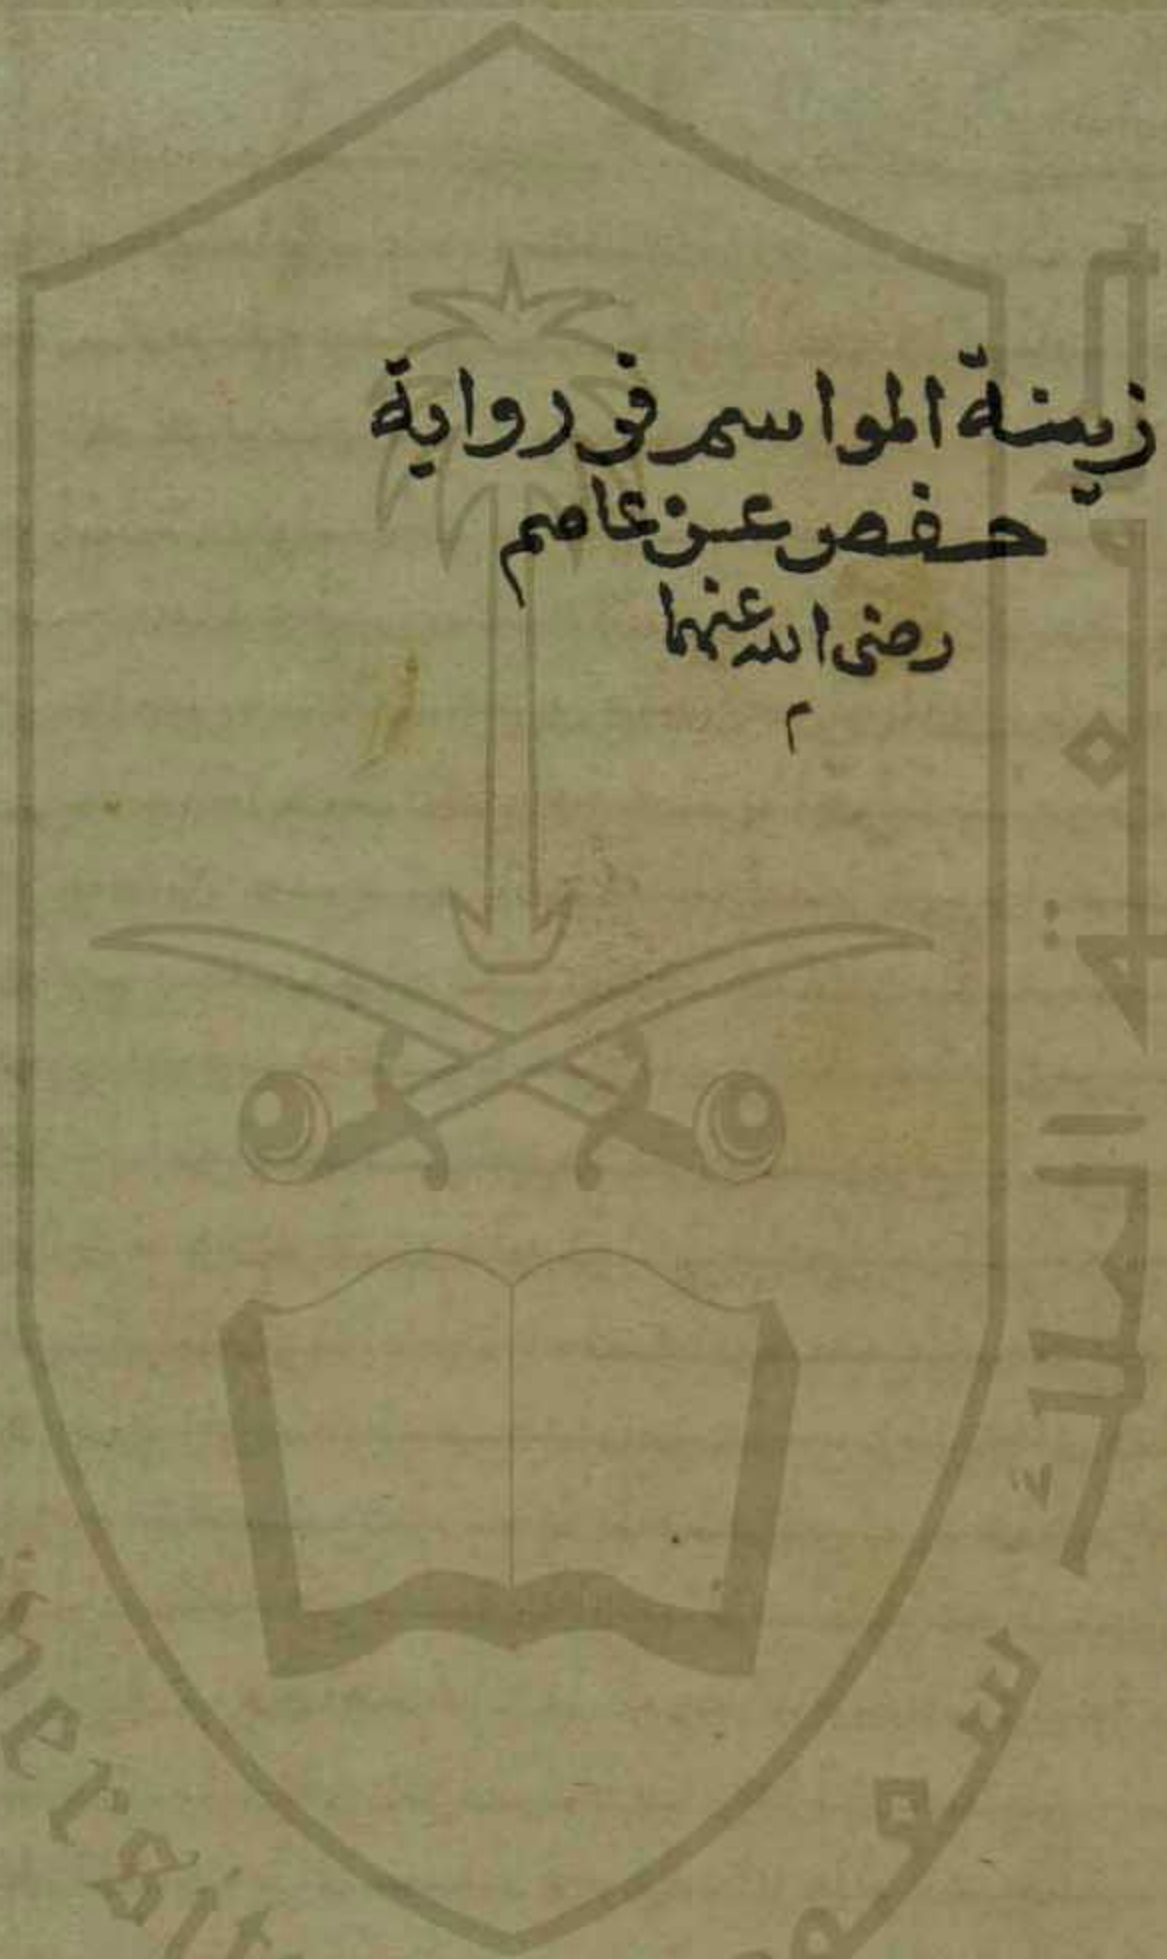 زينة المواسم في رواية
حفص عن عاصم
رضى الله عنهما
م